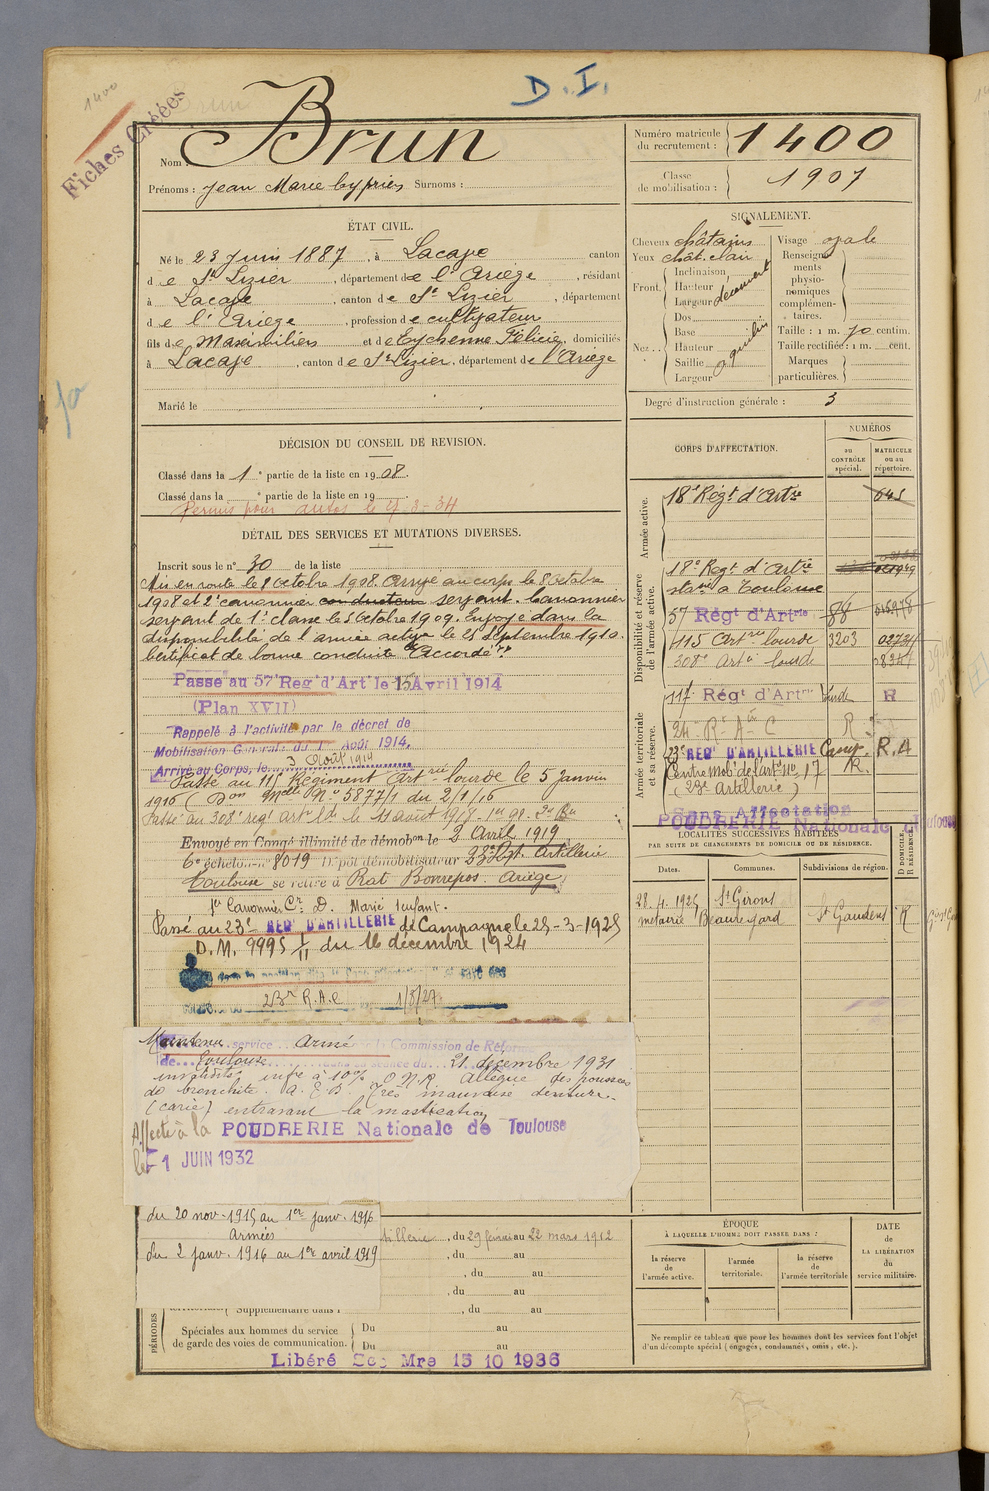 1400
Fiches Créées
D.I.
Nom : Brun
Prénoms : Jean Marie Cyprien Surnoms :
Numéro matricule du recrutement : 1400
Classe de mobilisation : 1907
ÉTAT CIVIL.
Né le 23 Juin 1887, à Lacave canton
de St Lizier, département de l'Ariège, résidant
à Lacave, canton de St Lizier, département
de l'Ariège, profession de cultivateur
fils de Maximilien et de Eychenne Félicie, domiciliés
à Lacave, canton de St Lizier, département de l'Ariège
Marié le
SIGNALEMENT.
Cheveux châtains
Yeux chât. clair
Front.
Inclinaison
Hauteur
Largeur découvert
Nez..
Dos
Base
Hauteur
Saillie
Largeur
Visage ovale
Renseignements physionomiques complémentaires.
Taille : 1 m. 70 centim.
Taille rectifiée : 1 m. cent.
Marques particulières.
Degré d'instruction générale : 3
DÉCISION DU CONSEIL DE REVISION.
Classé dans la 1e partie de la liste en 1908.
Classé dans la e partie de la liste en 19
Permis pour autos le
DÉTAIL DES SERVICES ET MUTATIONS DIVERSES.
Inscrit sous le n° 30 de la liste
Mis en route le 8 Octobre 1908. Arrivé au corps le 8 Octobre
1908 et 2e canonnier conducteur servant. Canonnier
servant de 1e classe le 5 Octobre 1909. Envoyé dans la
disponibilité de l'armée active le 25 Septembre 1910.
Certificat de bonne conduite "Accordé"
Passé au 57e Reg t d'Art le 15 Avril 1914
(Plan XVII)
Rappelé à l'activité par le décret de
Mobilisation Générale du 1er Août 1914.
Arrivé au Corps, le 3 Août 1914
Passé au 117 Régiment Art rie lourde le 5 janvier
1916 (Don Melle N° 5877/1 du 2/1/16
Passé au 308e regt art ld. le 11 août 1918.
Envoyé en Congé illimité de démob on le 2 Avril 1919
6e échelon n° 8019 Dépôt démobilisateur 23e Rgt. Artillerie
Toulouse se retire à Rat Bonrepos. Ariège
1er Canonnier Cr D. Marié 1 enfant.
Passé au 23e REGt D'ARTILLERIE de Campagne le 25-3-1925
D.M. 9995 I/11 du 16 décembre 1924
23e R.A.C 1/5/27
Maintenu service Armé Commission de Réforme
de Toulouse séance du 21 décembre 1931
invalidité infre à 10% O.N.R. Allègue des poussées
de bronchite. A.E.B. Très mauvaise denture.
(carie) entravant la mastication
Affecté à la POUDRERIE Nationale de Toulouse
le 1 JUIN 1932
du 20 nov. 1915 au 1er janv. 1916
Armées
du 2 janv. 1916 au 1er avril 1919
tillerie, du 29 février au 22 mars 1912
, du au
, du au
, du au
Supplémentaire dans l , du au
PÉRIODES
Spéciales aux hommes du service de garde des voies de communication.
Du au
Du au
Libéré Mre 15 10 1936
CORPS D'AFFECTATION.
NUMÉROS
au CONTRÔLE spécial.
MATRICULE ou au répertoire.
Armée active.
18e Régt d'Artie 645
Disponibilité et réserve de l'armée active.
18e Regt d'Artie
à Toulouse
57 Régt d'Artrie 88
115 Art rie lourde 3203
308e Art ie lourde
Armée territoriale et sa réserve.
117 Régt d'Artie Lourde R
24e R A C R
23e REGt D'ARTILLERIE Camp. R.A
Centre Mobr de l'art n° 17 R.
(23e Artillerie)
Sans Affectation
POUDRERIE Nationale de Toulouse
LOCALITÉS SUCCESSIVES HABITÉES
PAR SUITE DE CHANGEMENTS DE DOMICILE OU DE RÉSIDENCE.
Dates.
Communes.
Subdivisions de région.
D DOMICILE R RÉSIDENCE
28.4.1925 St Girons
métairie Beauregard St Gaudens R
ÉPOQUE
À LAQUELLE L'HOMME DOIT PASSER DANS :
la réserve de l'armée active.
l'armée territoriale.
la réserve de l'armée territoriale
DATE de LA LIBÉRATION du service militaire.
Ne remplir ce tableau que pour les hommes dont les services font l'objet
d'un décompte spécial (engagés, condamnés, omis, etc.).